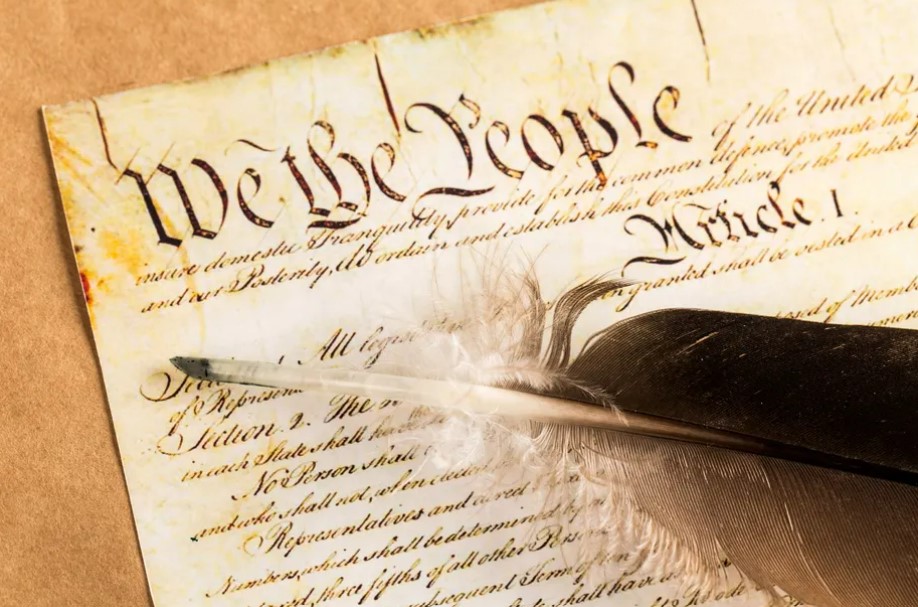 We the People of the United
insure domestic Tranquility, provide for the common defence, promote the
and our Posterity, do ordain and establish this Constitution for the United
Article. I.
All legis granted shall be vested in a
of Memb
of Represen
Section. 2. The
in each State shall ha
No Person shall
and who shall not, when elected
Representatives and direct
Numbers, which shall be determined by a
three fifths of all other Person
subsequent Term of ten
State shall have a